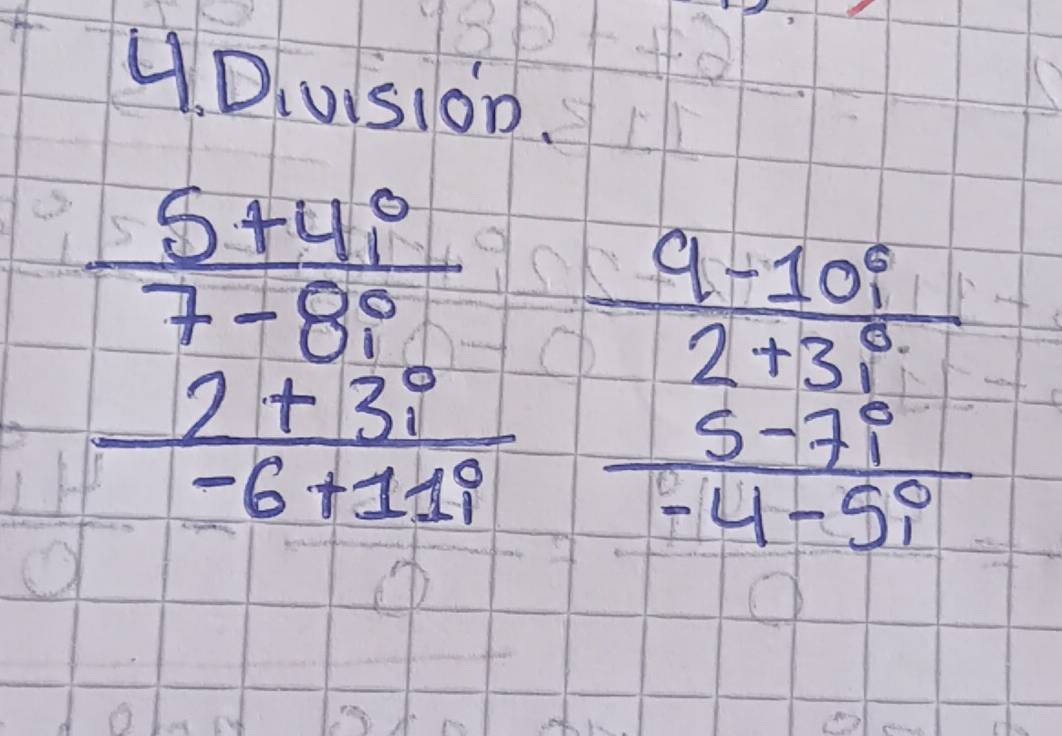 4. División.
5+4i
7-8i
2+3i
-6+11i
9-10i
2+3i
5-7i
-4-5i